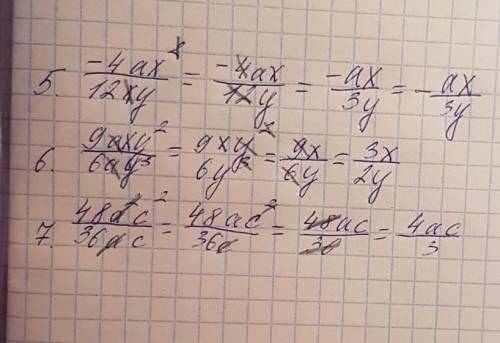 5. -4ax²/12xy = -4ax/12y = -ax/3y = -ax/3y
6. 9axy²/6ay³ = 9xy²/6y³ = 9x/6y = 3x/2y
7. 48a²c²/36ac = 48ac²/36c = 48ac/36 = 4ac/3